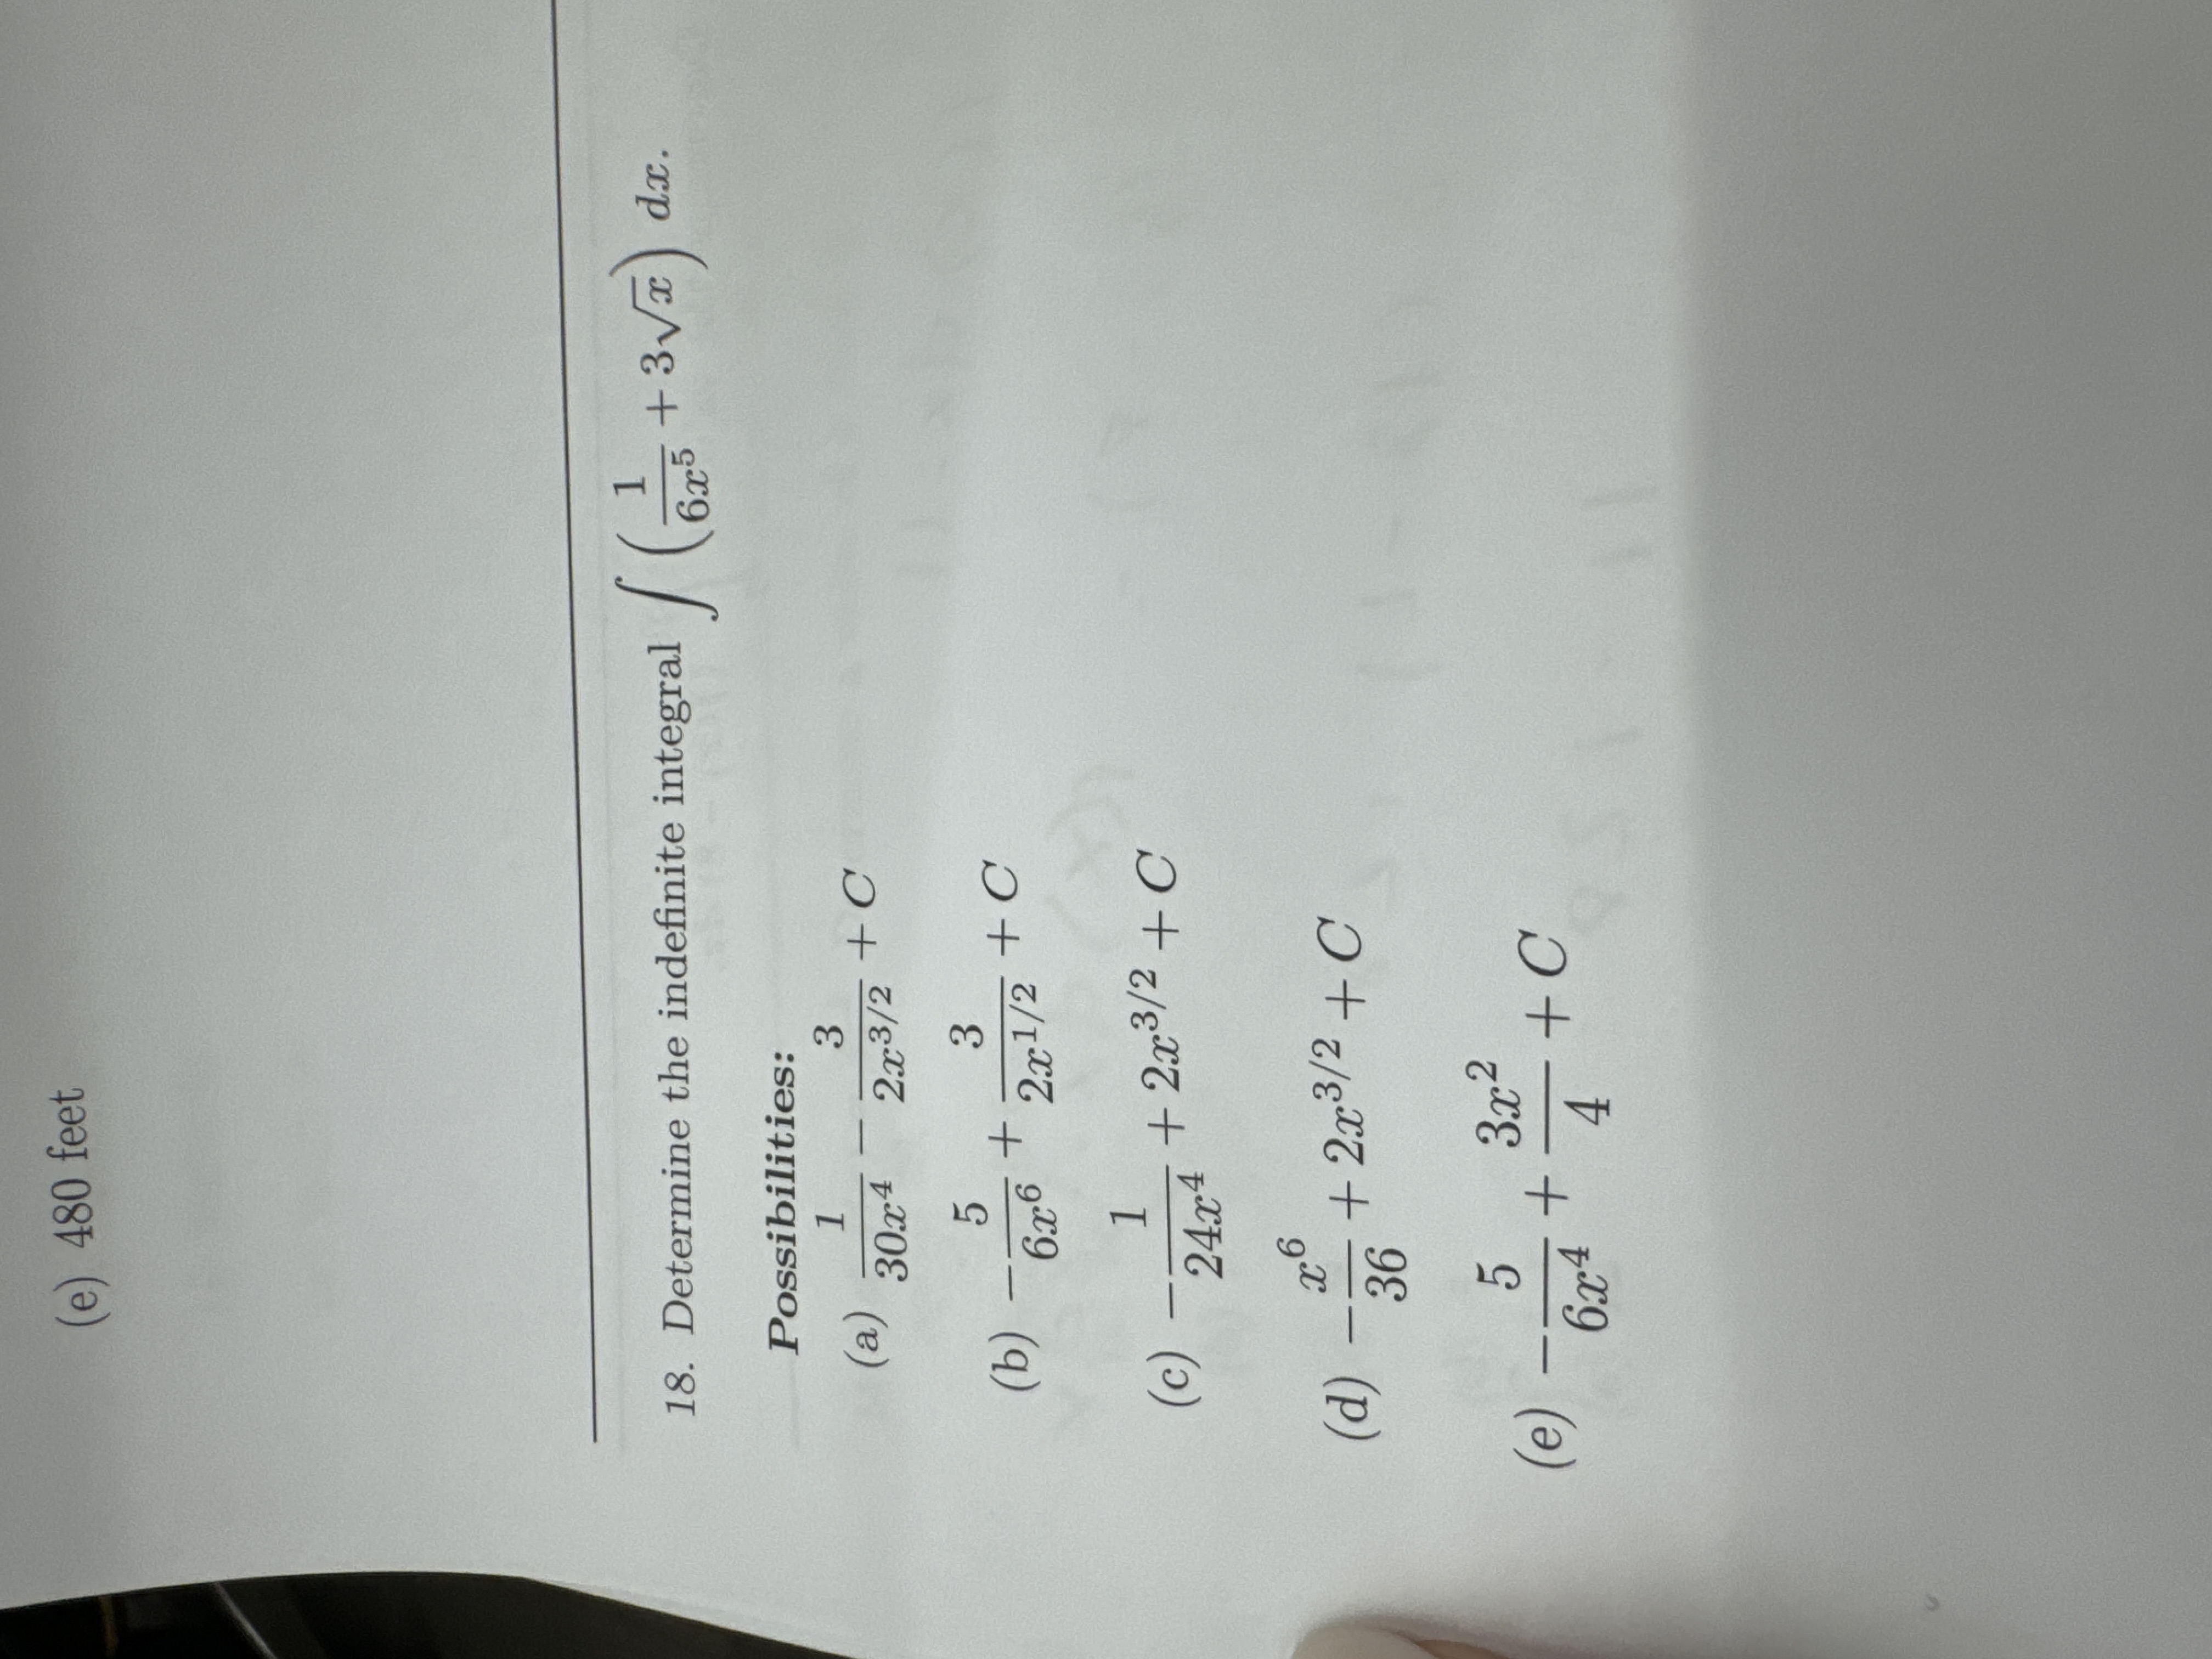 (e) 480 feet
18. Determine the indefinite integral ∫ (1/(6x⁵) + 3√x) dx.
Possibilities:
(a) 1/(30x⁴) − 3/(2x^(3/2)) + C
(b) −5/(6x⁶) + 3/(2x^(1/2)) + C
(c) −1/(24x⁴) + 2x^(3/2) + C
(d) −x⁶/36 + 2x^(3/2) + C
(e) −5/(6x⁴) + 3x²/4 + C